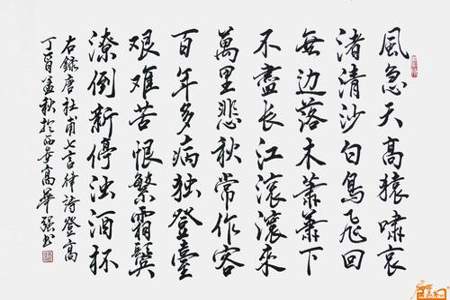 風急天高猿嘯哀
渚清沙白鳥飛回
無边落木蕭蕭下
不盡长江滾滾来
萬里悲秋常作客
百年多病独登臺
艰难苦恨繁霜鬓
潦倒新停浊酒杯
右録唐杜甫七言律诗登高
丁酉孟秋於西安高華强书